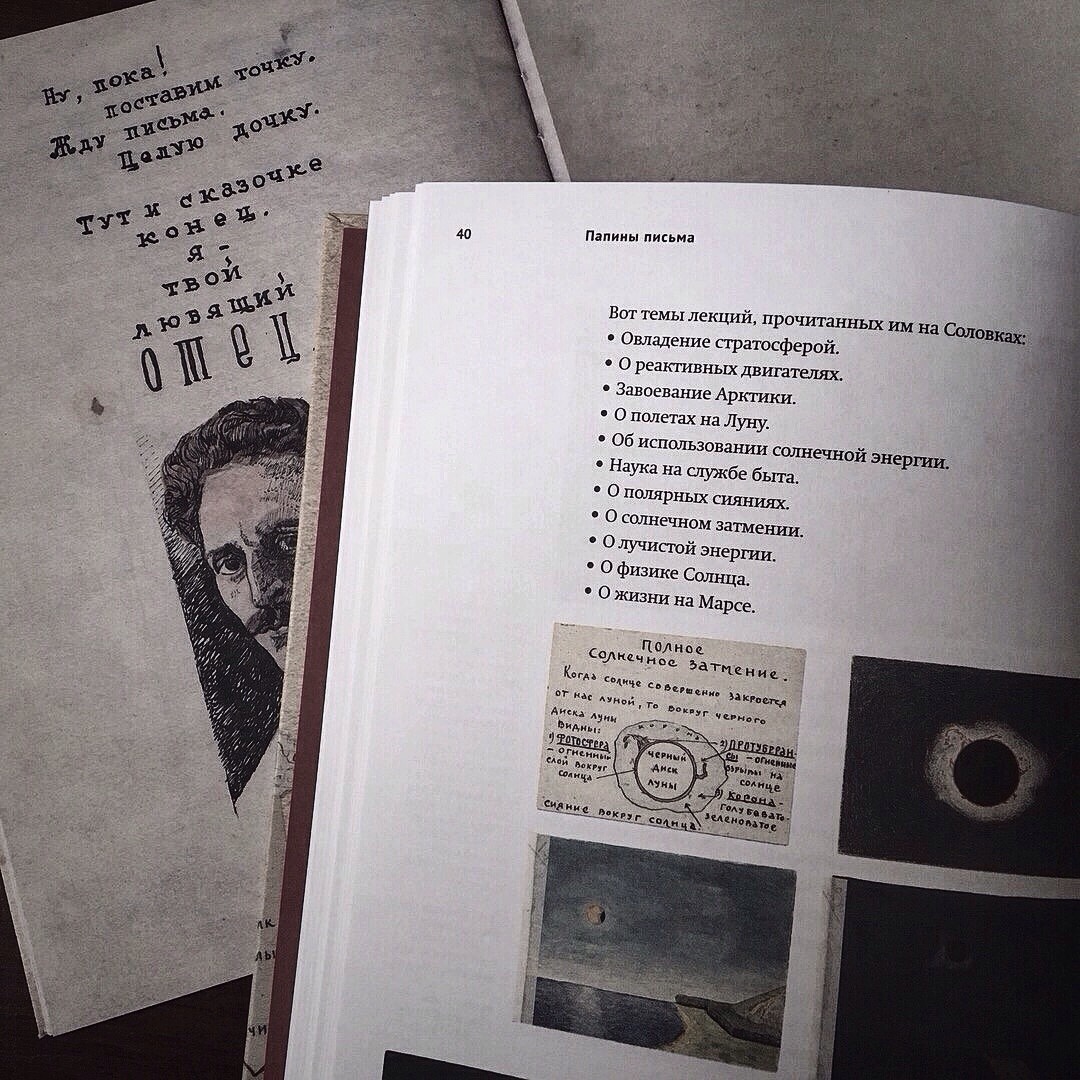 Ну, пока!
поставим точку.
Жду письма.
Целую дочку.
Тут и сказочке
конец.
я -
твой
любящий
отец
40
Папины письма
Вот темы лекций, прочитанных им на Соловках:
• Овладение стратосферой.
• О реактивных двигателях.
• Завоевание Арктики.
• О полетах на Луну.
• Об использовании солнечной энергии.
• Наука на службе быта.
• О полярных сияниях.
• О солнечном затмении.
• О лучистой энергии.
• О физике Солнца.
• О жизни на Марсе.
Полное
солнечное затмение.
Когда солнце совершенно закроется
от нас луной, то вокруг черного
диска луны
видны:
1) Фотосфера
– огненный
слой вокруг
солнца
корона
черный
диск
луны
2) Протуберан-
сы – огненные
взрывы на
солнце
3) Корона –
голубевато-
зеленоватое
сияние вокруг солнца